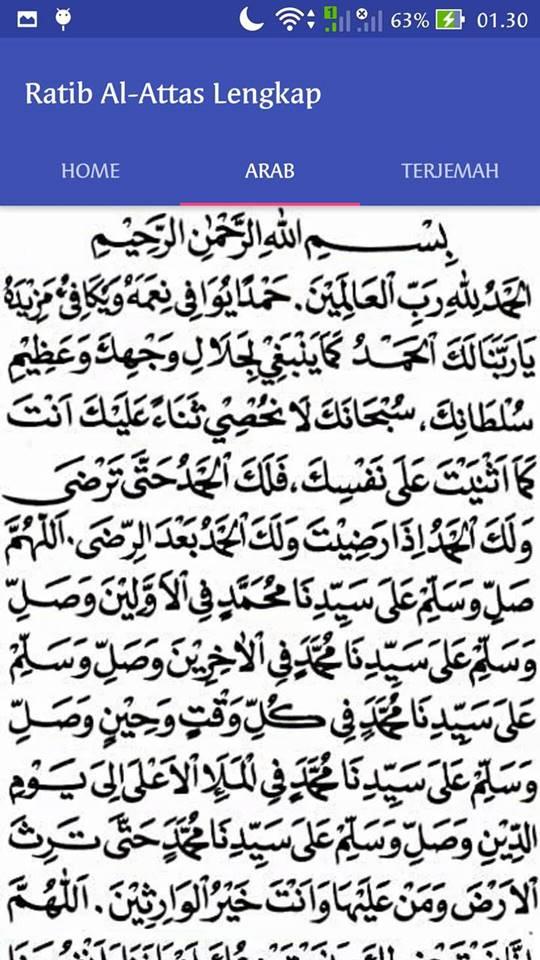 63% 01.30
Ratib Al-Attas Lengkap
HOME ARAB TERJEMAH
بِسْمِ اللّٰهِ الرَّحْمٰنِ الرَّحِيْمِ
اَلْحَمْدُ لِلّٰهِ رَبِّ الْعَالَمِيْنَ. حَمْدًا يُوَافِي نِعَمَهُ وَيُكَافِئُ مَزِيْدَهُ
يَا رَبَّنَا لَكَ الْحَمْدُ كَمَا يَنْبَغِيْ لِجَلَالِ وَجْهِكَ وَعَظِيْمِ
سُلْطَانِكَ، سُبْحَانَكَ لَا نُحْصِيْ ثَنَاءً عَلَيْكَ اَنْتَ
كَمَا اَثْنَيْتَ عَلَى نَفْسِكَ، فَلَكَ الْحَمْدُ حَتَّى تَرْضَى
وَلَكَ الْحَمْدُ اِذَا رَضِيْتَ وَلَكَ الْحَمْدُ بَعْدَ الرِّضَى. اَللّٰهُمَّ
صَلِّ وَسَلِّمْ عَلَى سَيِّدِنَا مُحَمَّدٍ فِي الْاَوَّلِيْنَ وَصَلِّ
وَسَلِّمْ عَلَى سَيِّدِنَا مُحَمَّدٍ فِي الْاٰخِرِيْنَ وَصَلِّ وَسَلِّمْ
عَلَى سَيِّدِنَا مُحَمَّدٍ فِي كُلِّ وَقْتٍ وَحِيْنٍ وَصَلِّ
وَسَلِّمْ عَلَى سَيِّدِنَا مُحَمَّدٍ فِي الْمَلَاِ الْاَعْلَى اِلَى يَوْمِ
الدِّيْنِ وَصَلِّ وَسَلِّمْ عَلَى سَيِّدِنَا مُحَمَّدٍ حَتَّى تَرِثَ
الْاَرْضَ وَمَنْ عَلَيْهَا وَاَنْتَ خَيْرُ الْوَارِثِيْنَ. اَللّٰهُمَّ